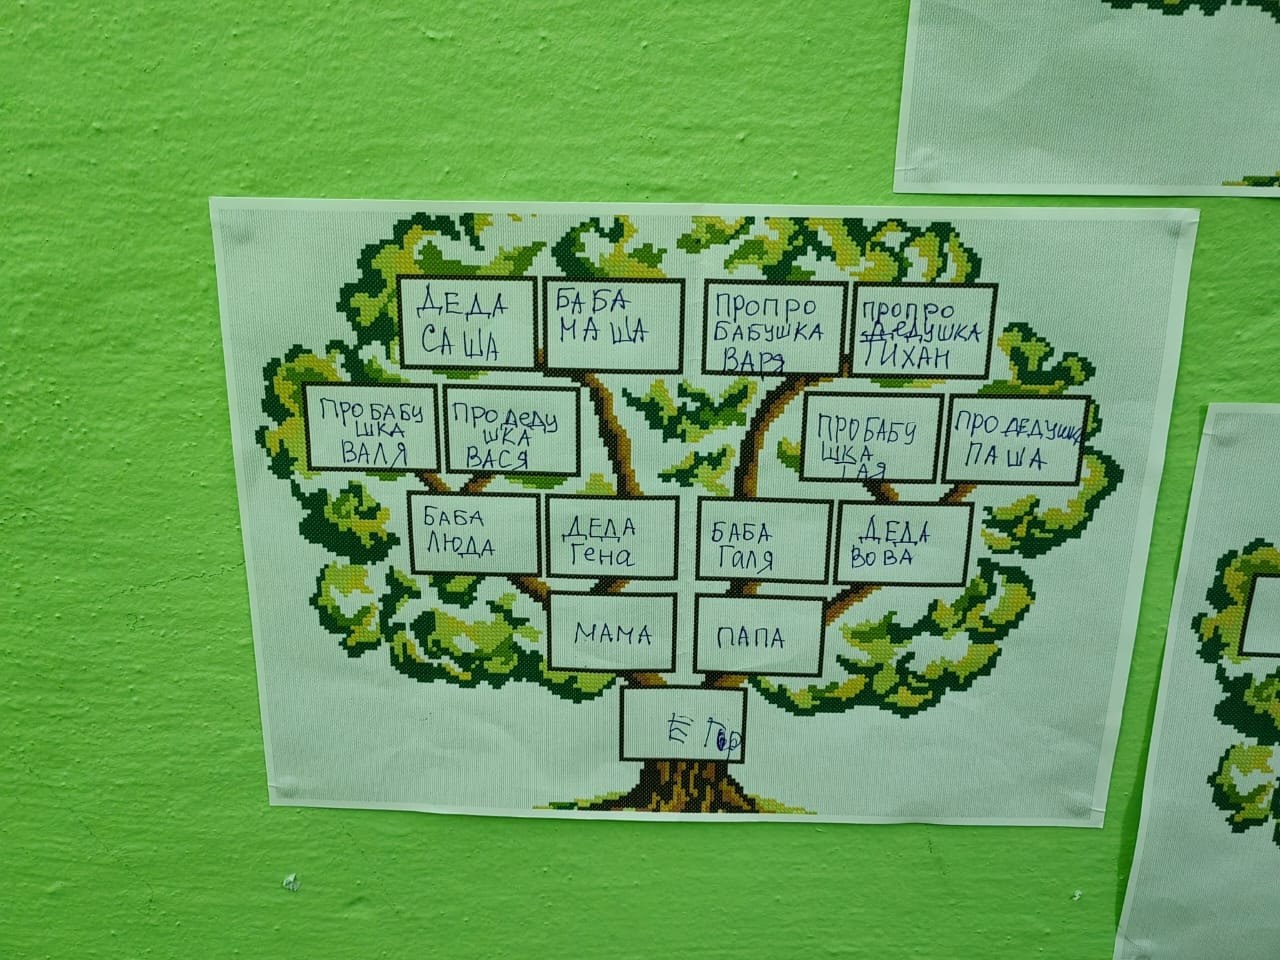 ДЕДА
САША
БАБА
МАША
ПРОПРО
БАБУШКА
ВАРЯ
ПРОПРО
ДЕДУШКА
ТИХАН
ПРОБАБУ
ШКА
ВАЛЯ
ПРОДЕДУ
ШКА
ВАСЯ
ПРОБАБУ
ШКА
ТАЯ
ПРОДЕДУШКА
ПАША
БАБА
ЛЮДА
ДЕДА
Гена
БАБА
ГАЛЯ
ДЕДА
ВОВА
МАМА
ПАПА
ЕГОР